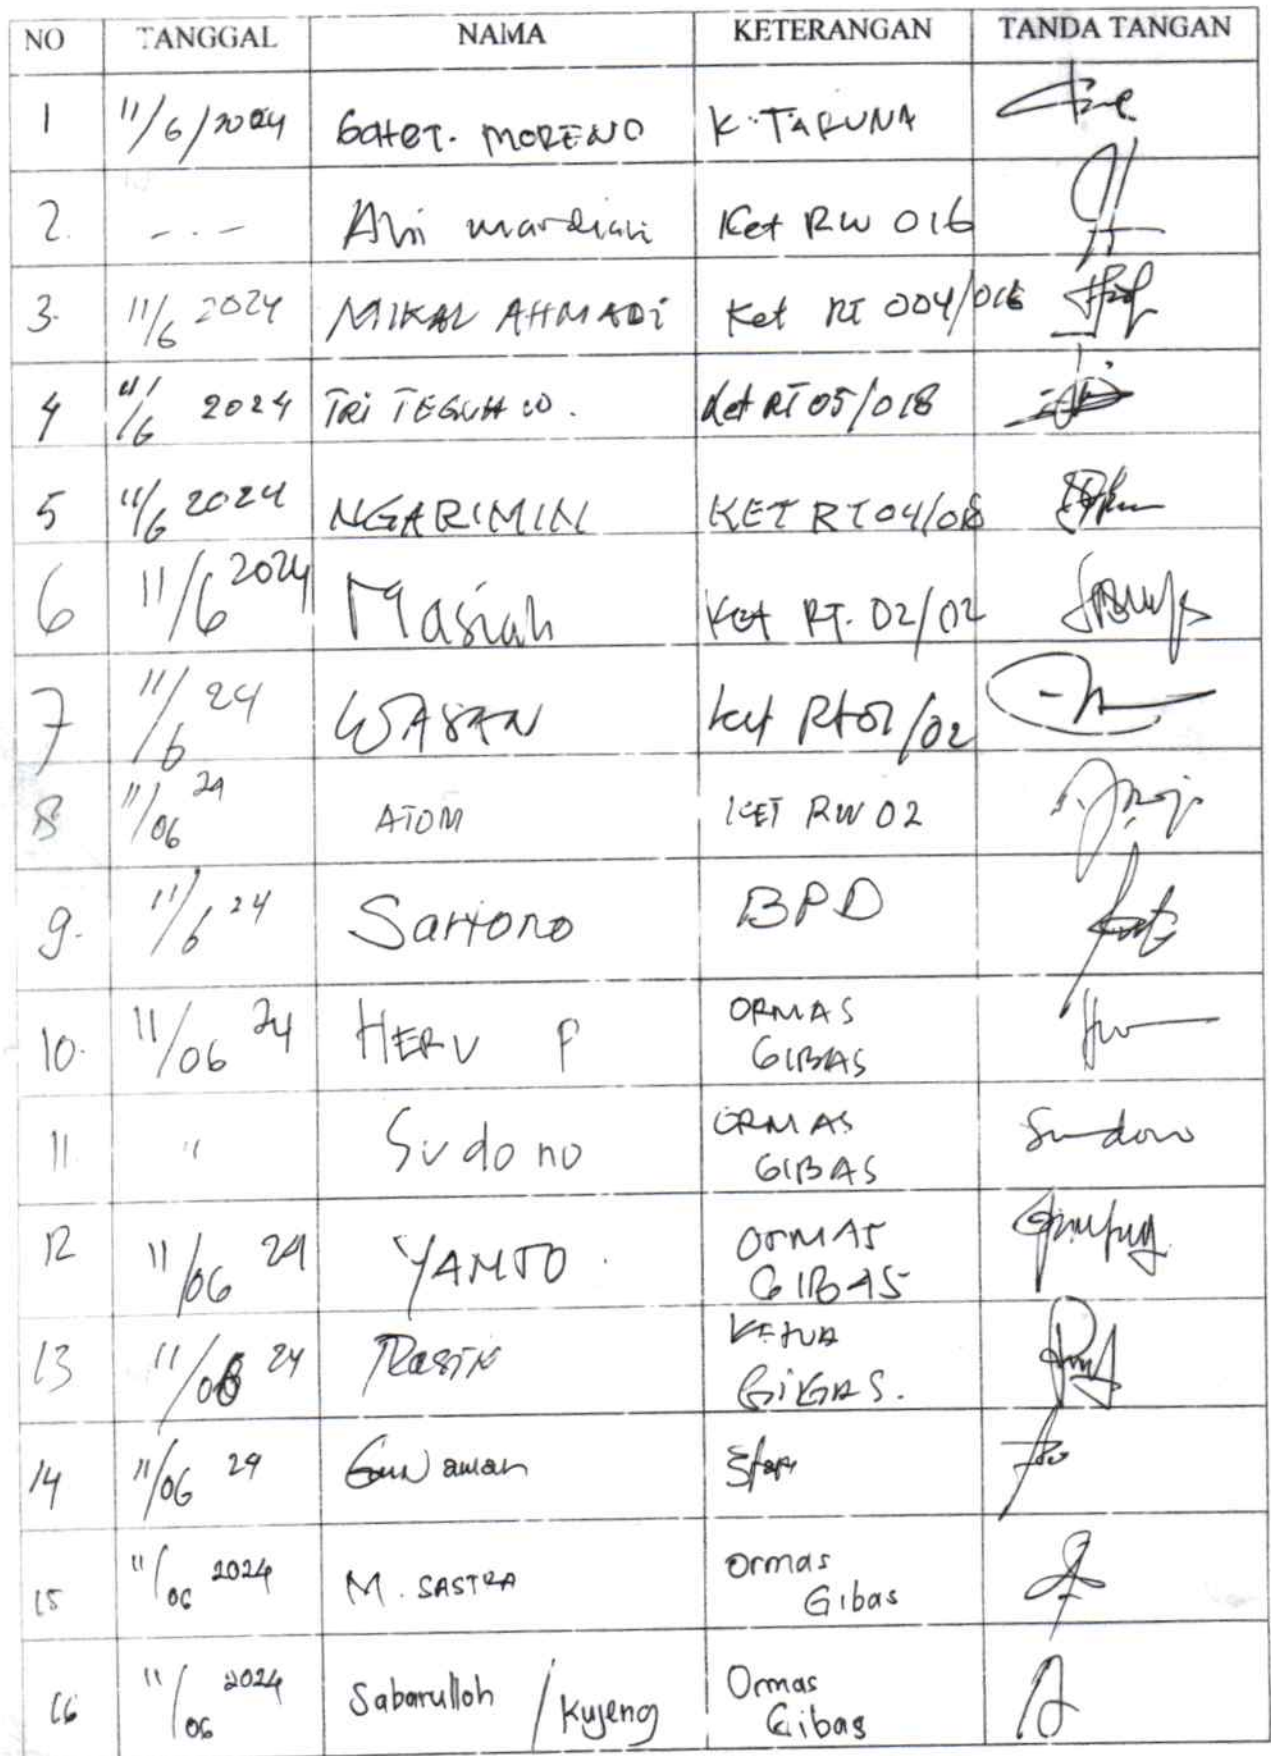 NO TANGGAL NAMA KETERANGAN TANDA TANGAN
1 11/6/2024 GATOT. MORENO K. TARUNA
2. - . - Alvi mardian Ket RW 016
3. 11/6 2024 MIKAL AHMADi Ket RT 004/016
4 11/6 2024 TRi TEGUH W. ket RT 05/018
5 11/6 2024 NGARIMIN KET RT 04/08
6 11/6 2024 Masiah Ket RT. 02/02
7 11/6 24 WASAN ket Rt 01/02
8 11/06 24 ATOM KET RW 02
9. 11/6 24 Sartono BPD
10. 11/06 24 HERU P ORMAS
GIBAS
11 " Sudono ORMAS Sudono
GIBAS
12 11/06 24 YAMTO. ORMAS
GIBAS
13 11/06 24 RASIN KETUA
GiBAS.
14 11/06 24 Gunawan Staf
15 11/06 2024 M. SASTRA Ormas
Gibas
16 11/06 2024 Sabarulloh / Kujeng Ormas
Gibas